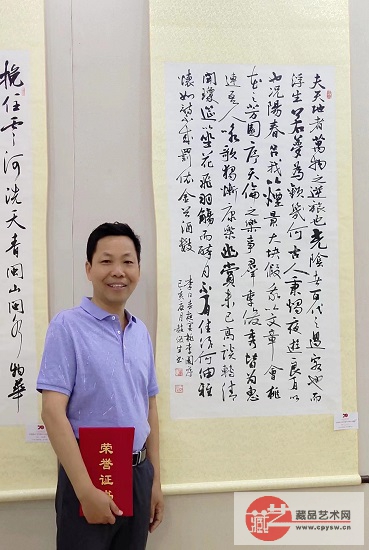 夫天地者萬物之逆旅也光陰者百代之過客也而
浮生若夢為歡幾何古人秉燭夜遊良有以
也況陽春召我以煙景大塊假我以文章會桃
李之芳園序天倫之樂事群季俊秀皆為惠
連吾人詠歌獨慚康樂幽賞未已高談轉清
開瓊筵以坐花飛羽觴而醉月不有佳作何伸雅
懷如詩不成罰依金谷酒數
李白春夜宴桃李園序
己亥
挽住雲河洗天青閩山閩水物華
荣誉证书
藏艺
藏品艺术网
www.cpysw.cn